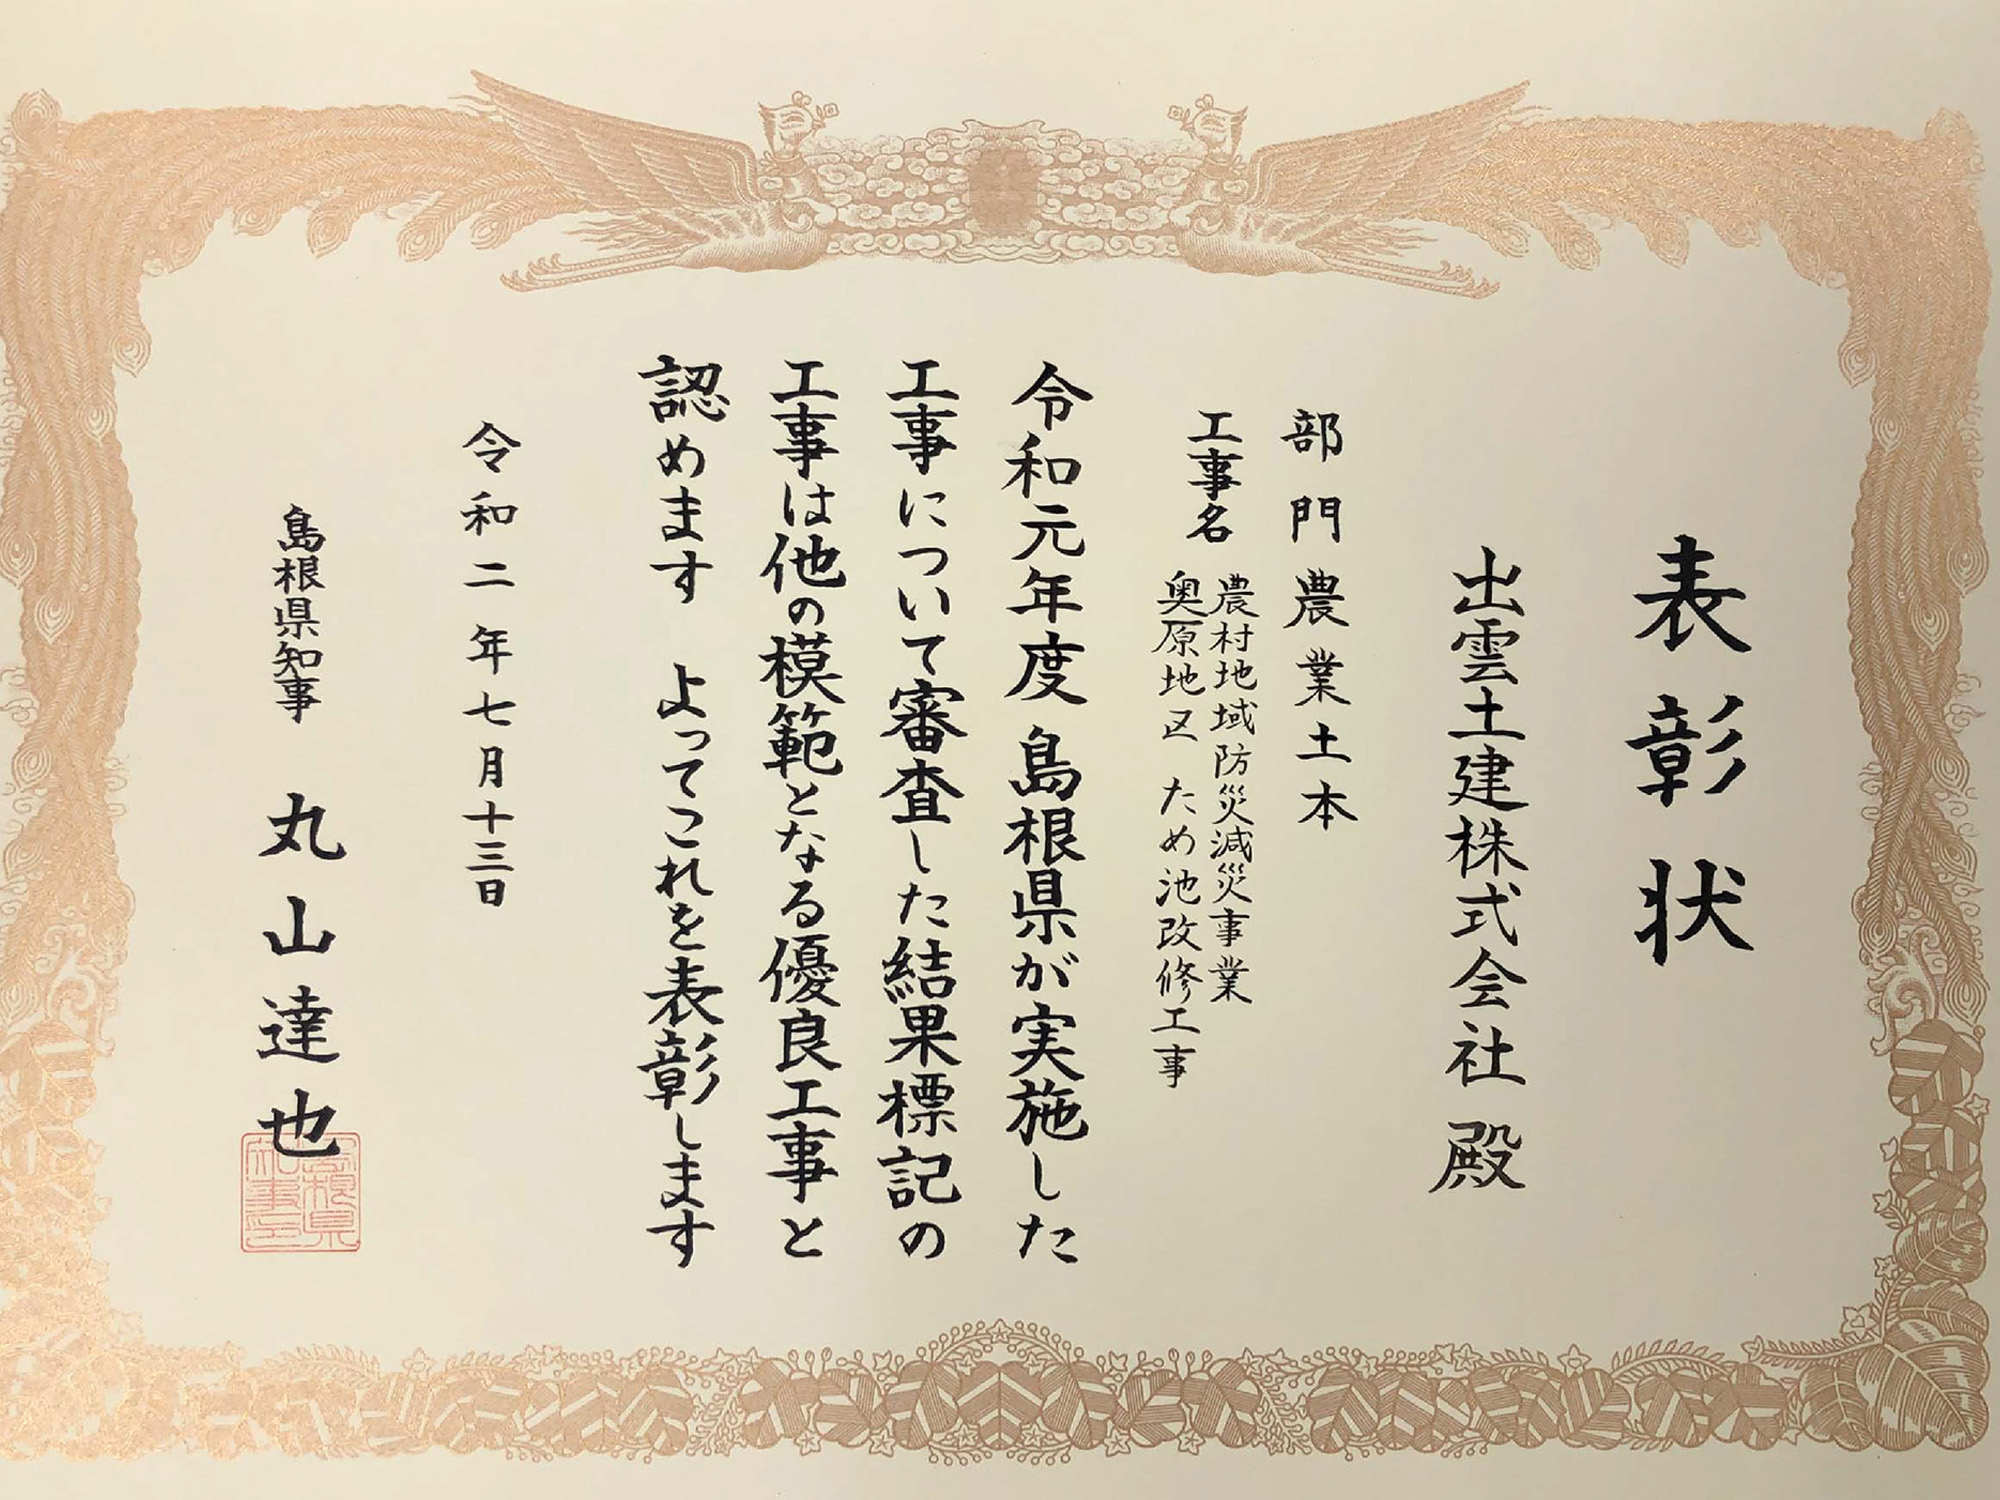 表彰状
出雲土建株式会社 殿
部門 農業土木
工事名 農村地域防災減災事業
奥原地区 ため池改修工事
令和元年度 島根県が実施した
工事について審査した結果標記の
工事は他の模範となる優良工事と
認めます よってこれを表彰します
令和二年七月十三日
島根県知事 丸山達也
島根県知事之印